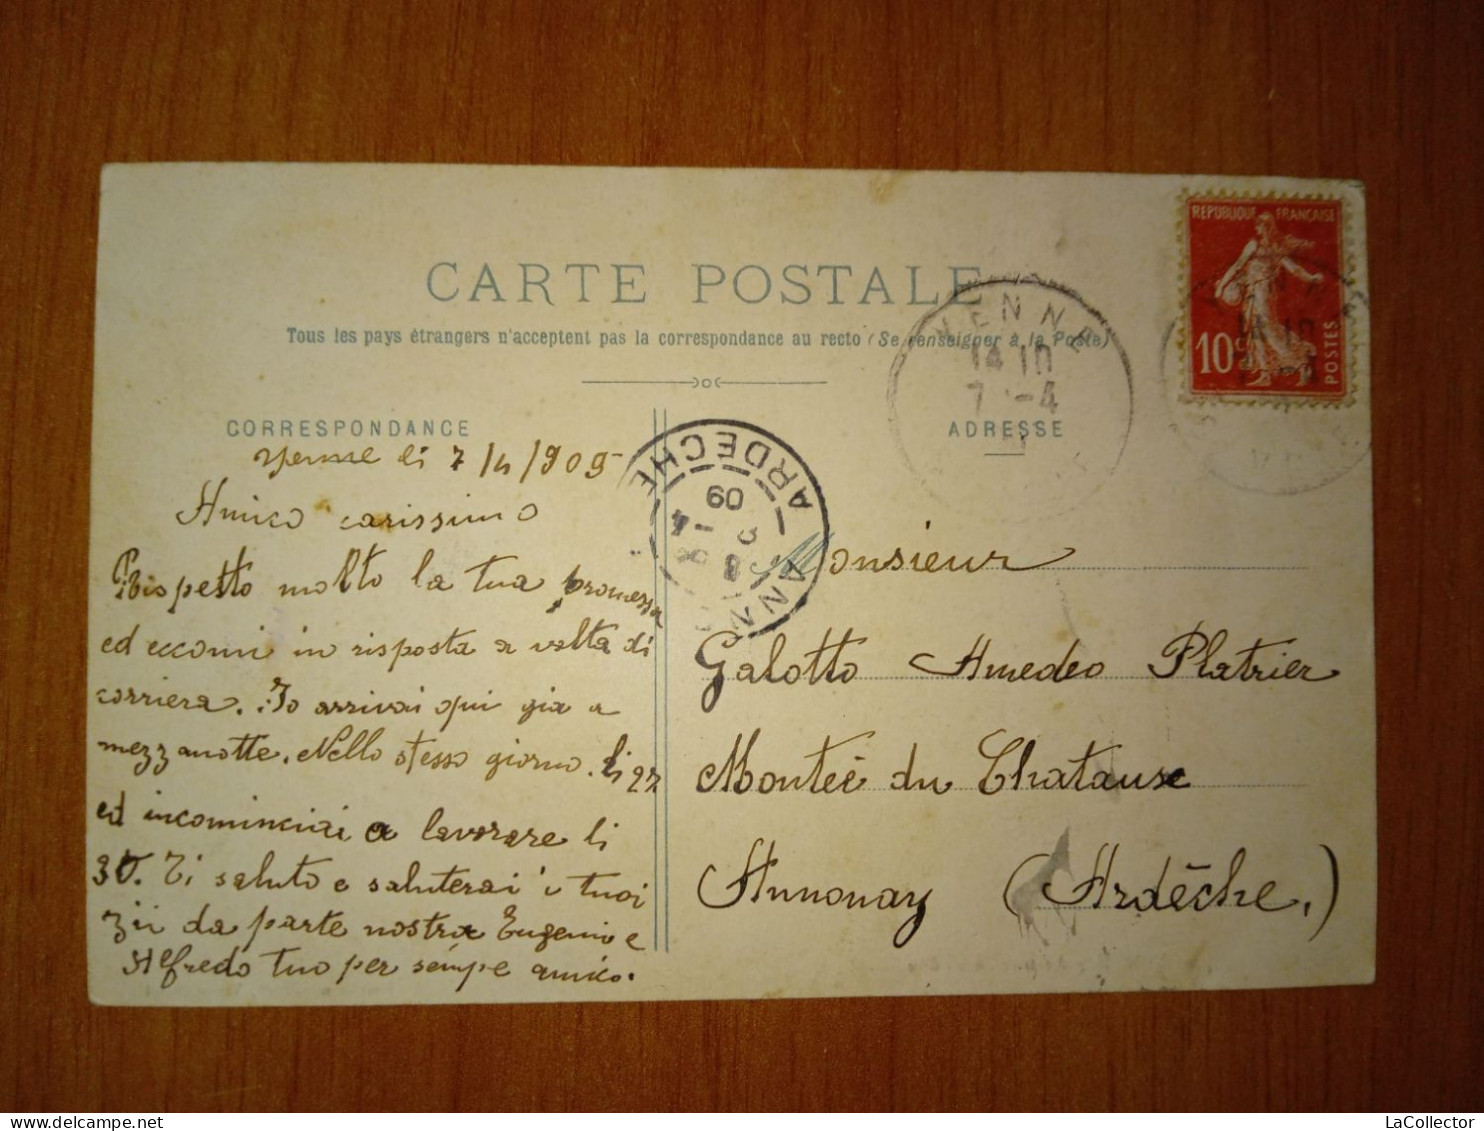 CARTE POSTALE
Tous les pays étrangers n'acceptent pas la correspondance au recto (Se renseigner à la Poste)
CORRESPONDANCE
ADRESSE
REPUBLIQUE FRANÇAISE
10c
POSTES
YENNE
14 10
7 -4
ARDECHE
09
8 -4
li 7/4/909
Amico carissimo
Rispetto molto la tua promessa
ed eccomi in risposta a volta di
corriera. Io arrivai qui già a
mezzanotte. Nello stesso giorno. li 27
ed incominciai a lavorare li
30. Ti saluto e saluterai i tuoi
zii da parte nostra Eugenio e
Alfredo tuo per sempe amico.
Monsieur
Galotto Amedeo Platrier
Monteé du Chataux
Annonay (Ardèche.)
LaCollector